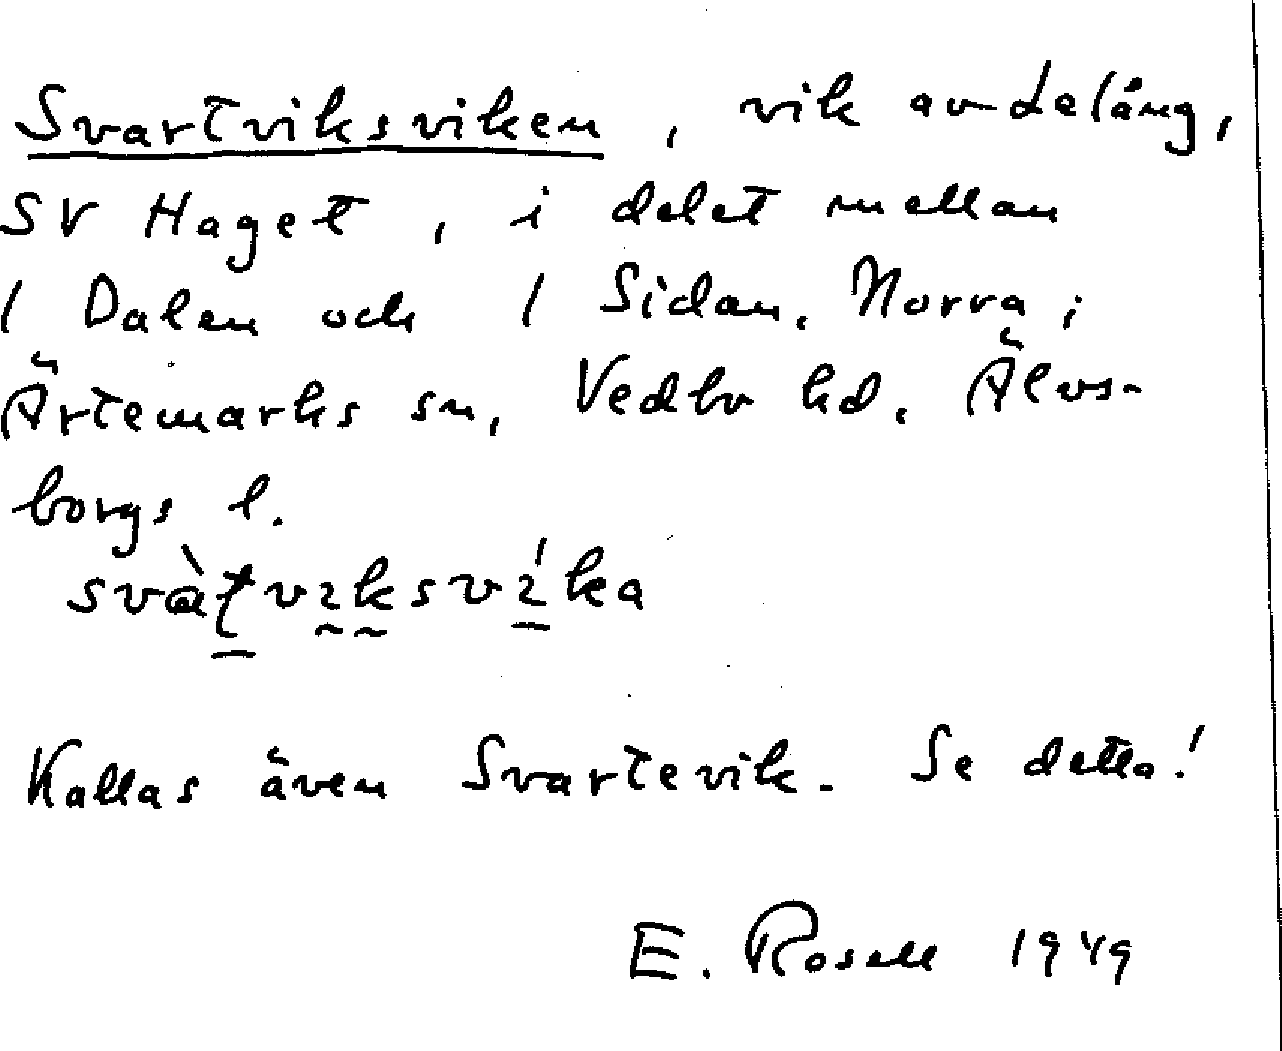 Svartviksviken, vik av Lelång,
SV Haget, i delet mellan
1 Dalen och 1 Sidan, Norra i
Ärtemarks sn, Vedbo hd. Älvs-
borgs l.
Kallas även Svartevik. Se detta!
E. Rosell 1949